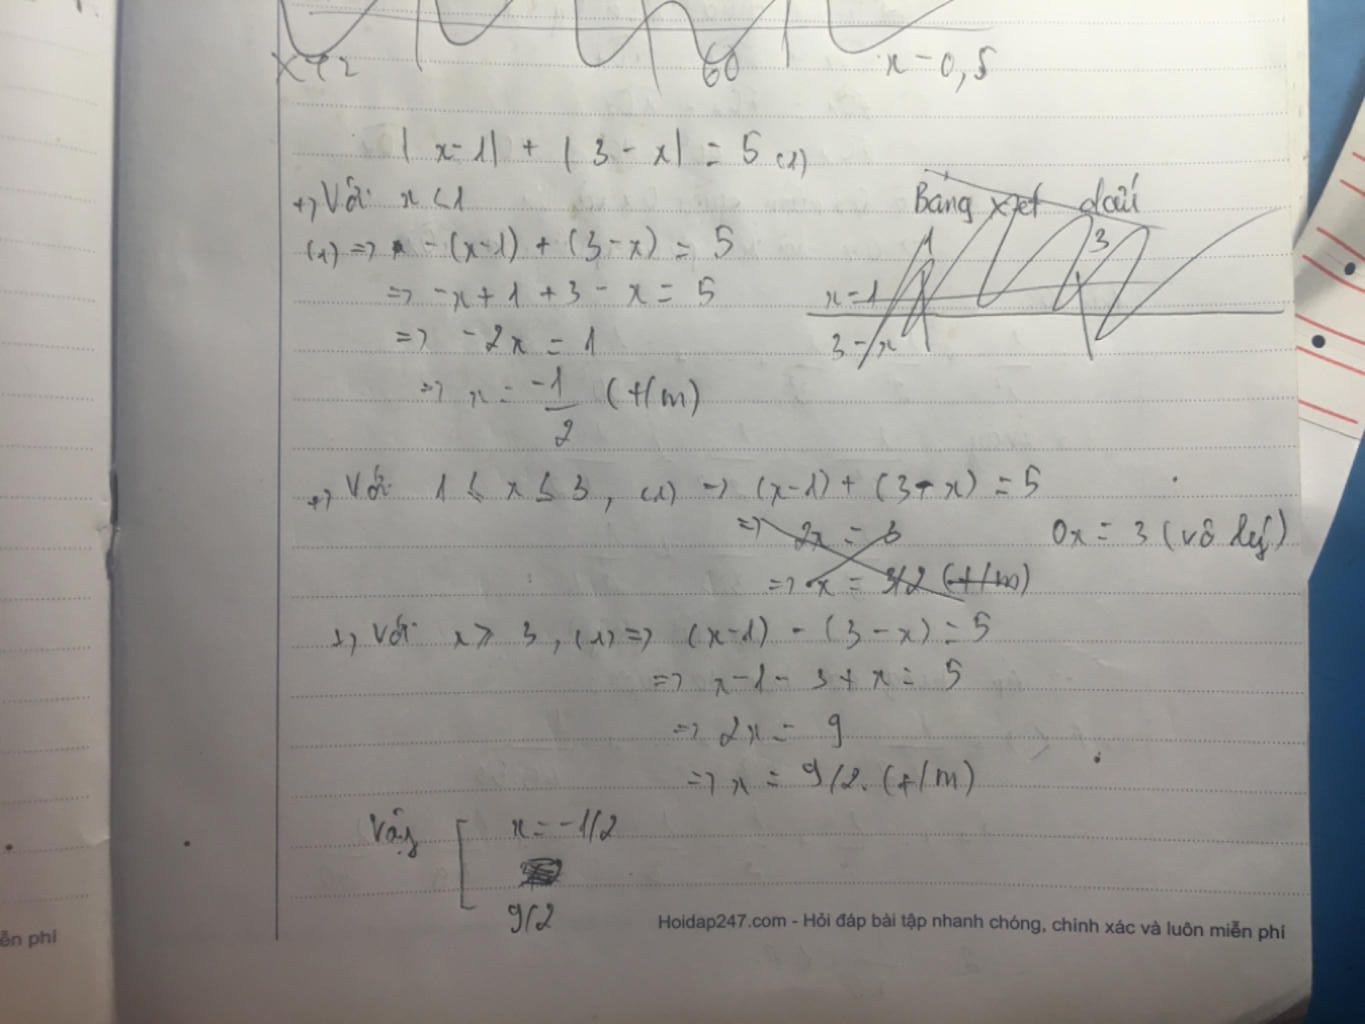 x+2 60 x-0,5
|x-1| + |3-x| = 5 (1)
+) Với x<1
Bảng xét dấu
(1) => -(x-1) + (3-x) = 5
1 3
=> -x+1+3-x = 5
x-1
=> -2x = 1
3-x
=> x = -1/2 (t/m)
+) Với 1 ≤ x ≤ 3, (1) => (x-1) + (3-x) = 5
=> 2x = 3 0x = 3 (vô lý)
=> x = 3/2 (t/m)
+) Với x > 3, (1) => (x-1) - (3-x) = 5
=> x-1-3+x = 5
=> 2x = 9
=> x = 9/2. (t/m)
Vậy [ x = -1/2
9/2
Hoidap247.com - Hỏi đáp bài tập nhanh chóng, chính xác và luôn miễn phí
ễn phí